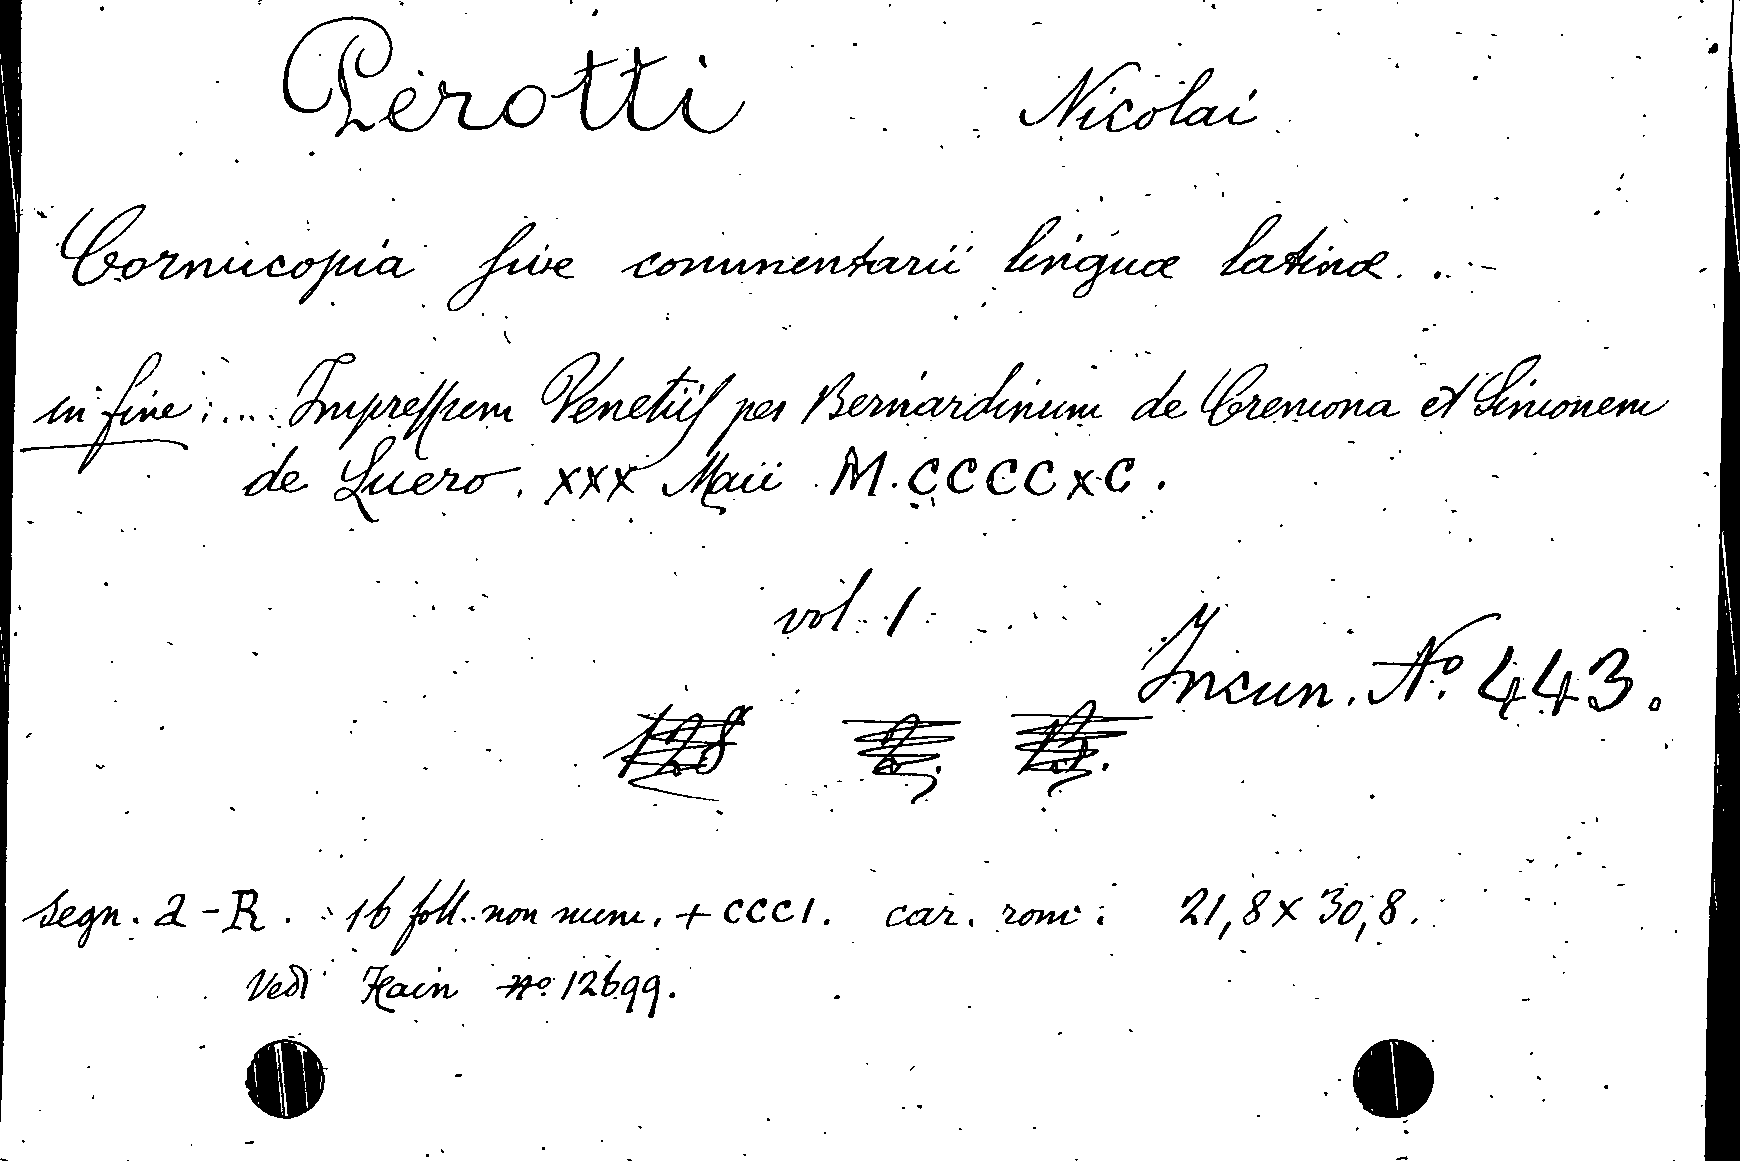 Perotti Nicolai
Cornucopia sive commentarii linguæ latinæ...
in fine:... Impressum Venetiis per Bernardinum de Cremona et Simonem
de Luero. XXX Maii M.CCCCXC.
vol. 1
Incun. Nº 443.
128 2. 13.
segn. a-R. 16 foll. non num. + CCCI. car. rom. 21,8 x 30,8.
Vedi Hain nº 12699.